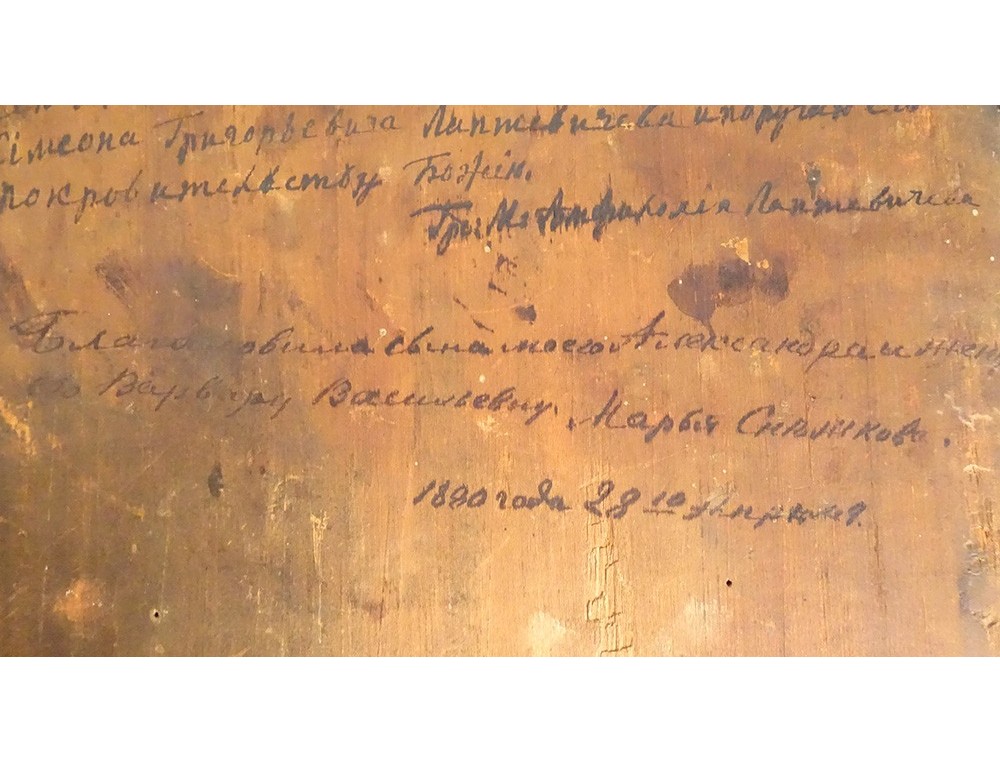 Сімеона Григорьевича Лаптевичева и поручаю Его
покровительству Божію.
Лаптевичева
Благословила сына моего Александра и жену
его Варвару Васильевну, Марья Снѣткова.
1890 года 28го Апрѣля.